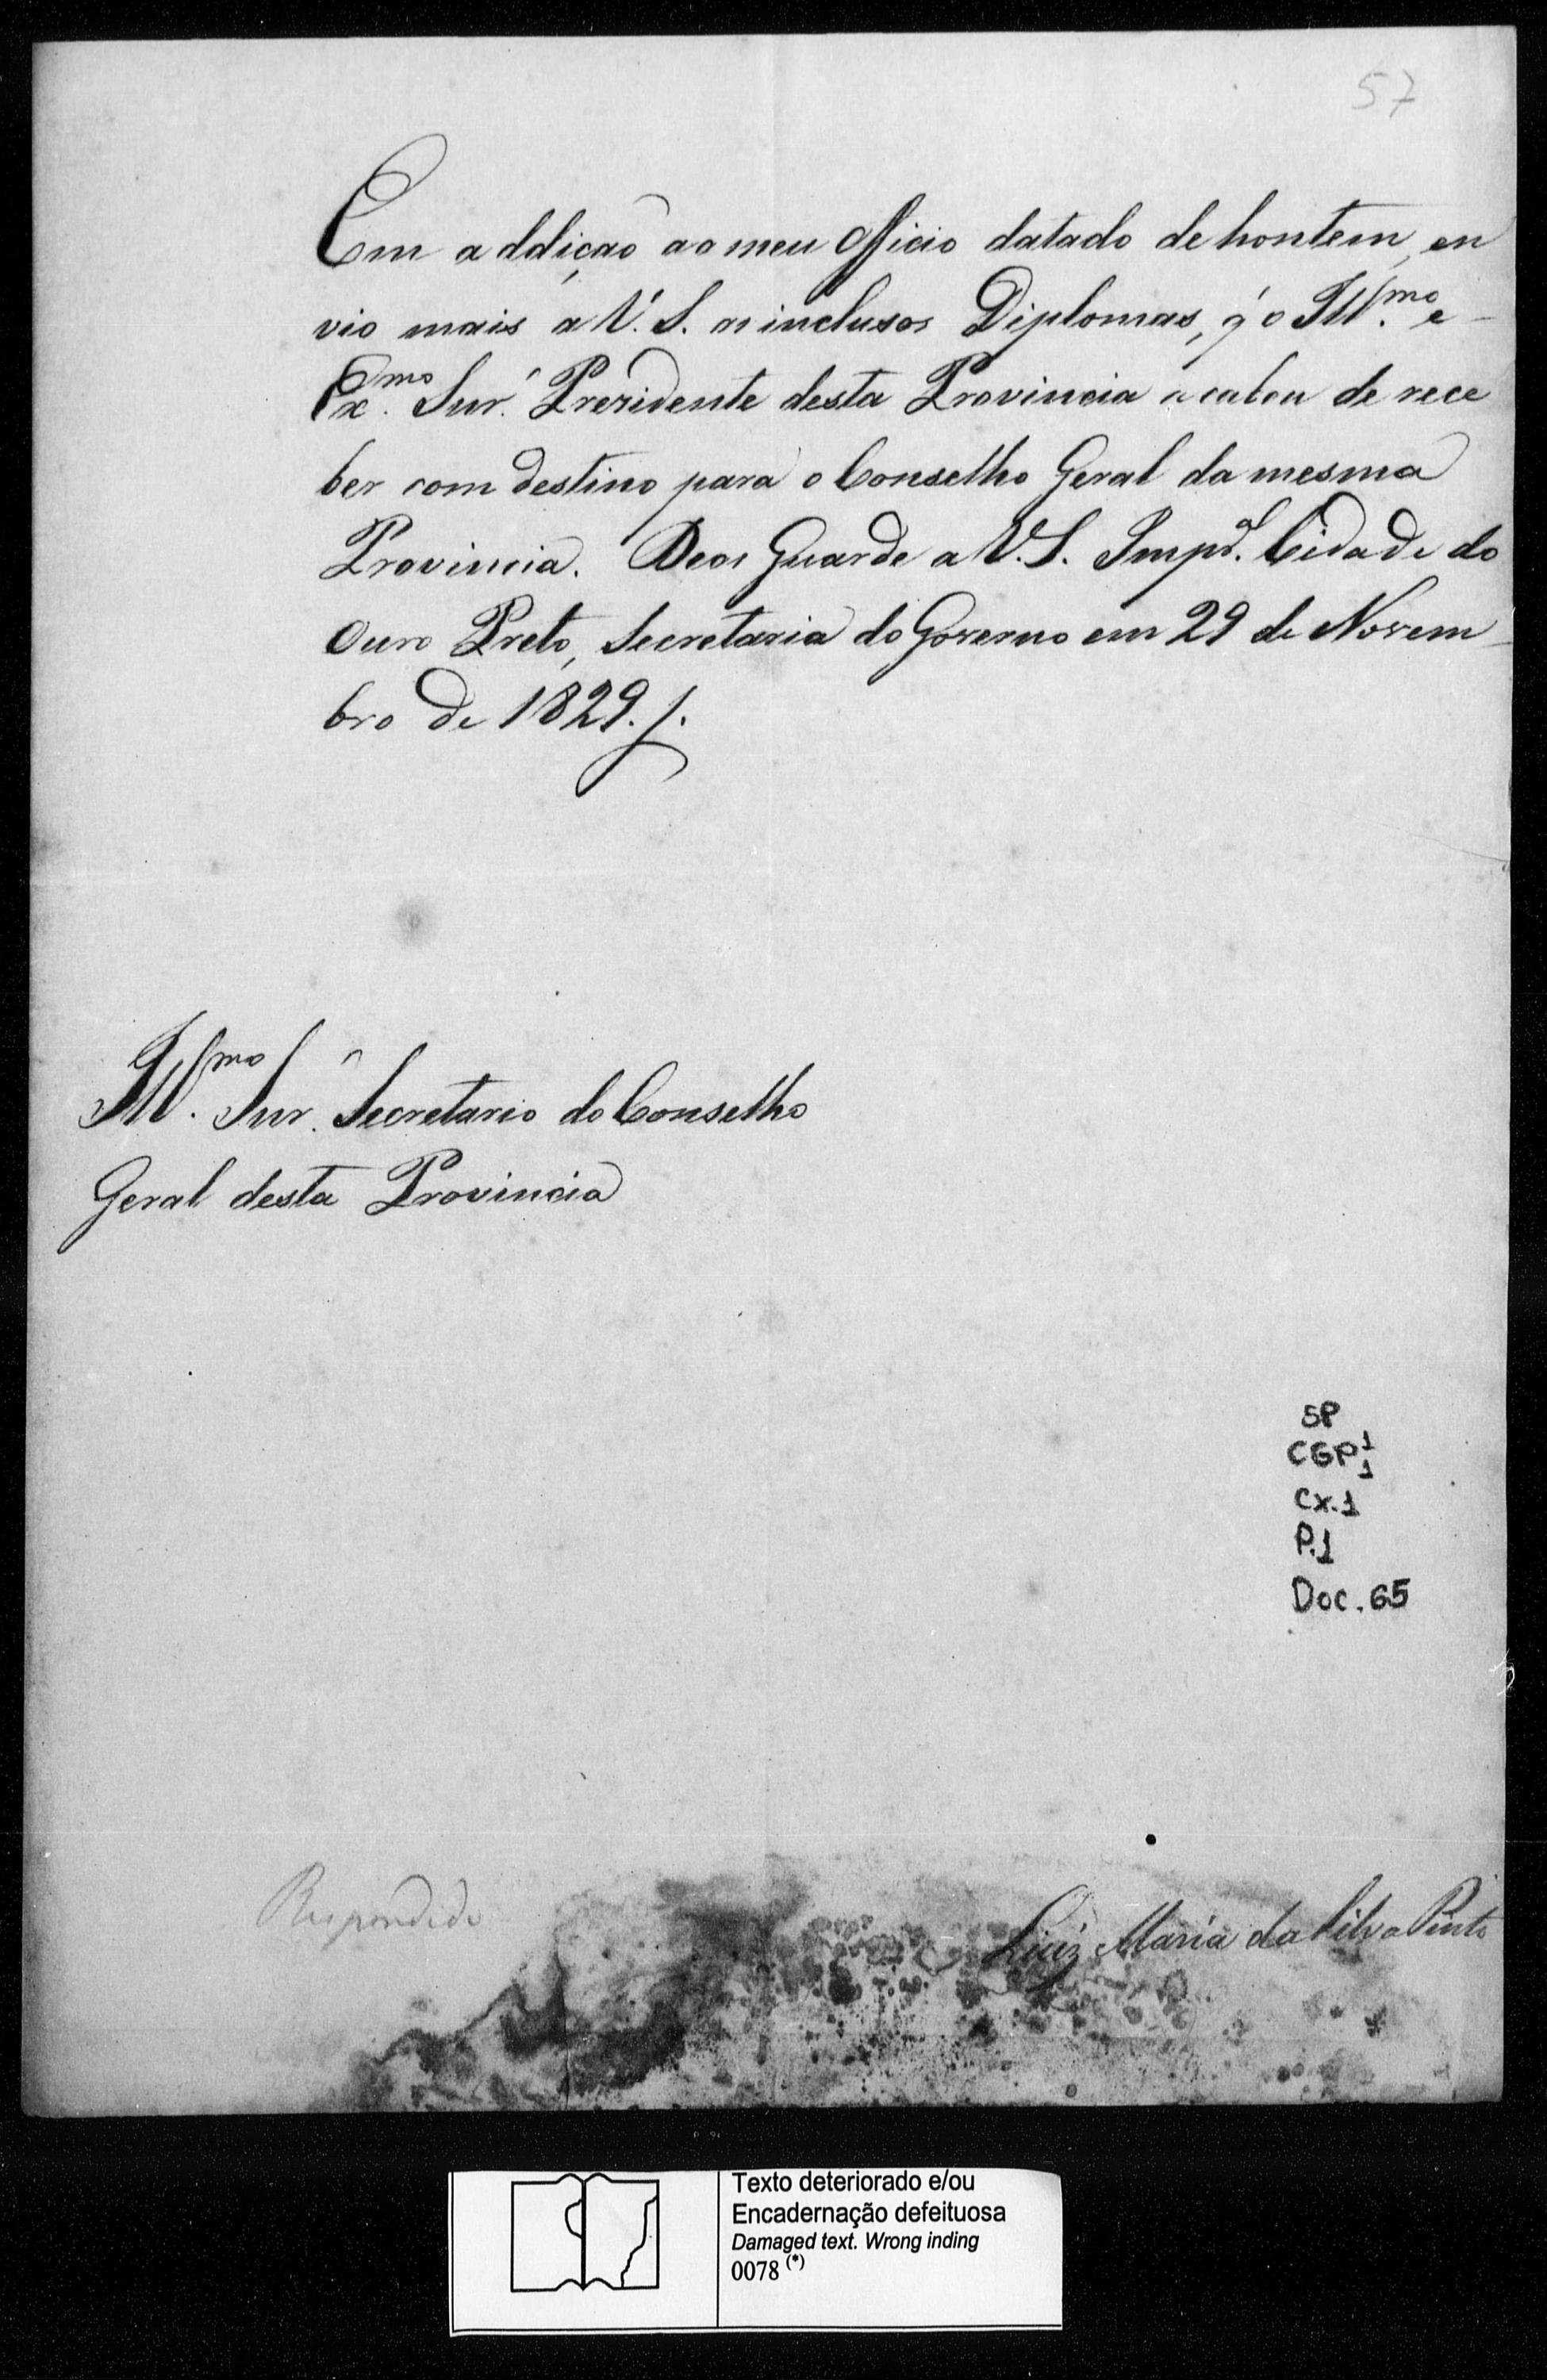 57
Em addição ao meu Officio datado de hontem, en
vio mais a V. S. os inclusos Diplomas, q' o Ill.mo e
Ex.mo Snr. Prezidente desta Provincia acabou de rece
ber com destino para o Conselho Geral da mesma
Provincia. Deos Guarde a V. S. Imp.al Cidade do
Ouro Preto, Secretaria do Governo em 29 de Novem
bro de 1829.
Ill.mo Snr. Secretario do Conselho
Geral desta Provincia
SP
CGP 1/1
Cx.1
P.1
Doc. 65
Respondido
Luiz Maria da Silva Pinto
Texto deteriorado e/ou
Encadernação defeituosa
Damaged text. Wrong inding
0078 (*)